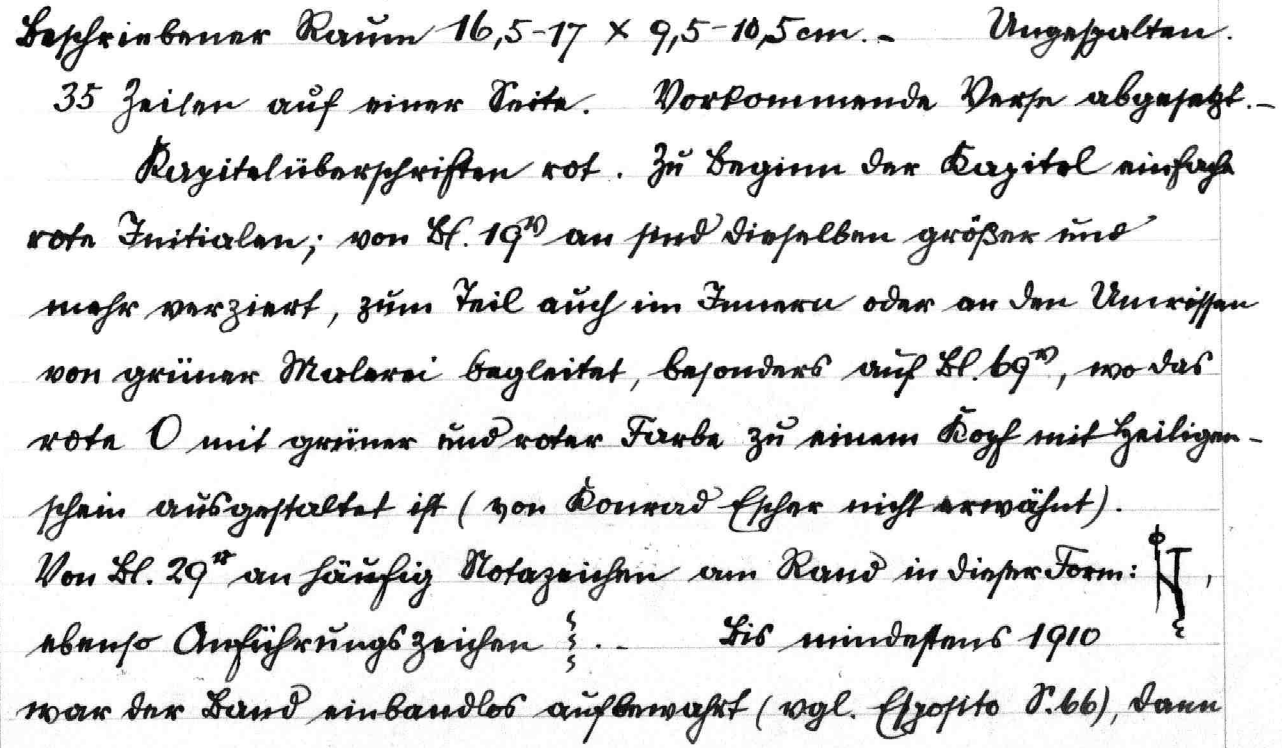 Beschriebener Raum 16,5-17 × 9,5-10,5 cm. – Ungespalten.
35 Zeilen auf einer Seite. Vorkommende Verse abgesetzt. –
Kapitelüberschriften rot. Zu Beginn der Kapitel einfache
rote Initialen; von Bl. 19ᵛ an sind dieselben größer und
mehr verziert, zum Teil auch im Innern oder an den Umrissen
von grüner Malerei begleitet, besonders auf Bl. 69ᵛ, wo das
rote O mit grüner und roter Farbe zu einem Kopf mit Heiligen-
schein ausgestaltet ist (von Konrad Escher nicht erwähnt).
Von Bl. 29ʳ an häufig Notazeichen am Rand in dieser Form: ,
ebenso Anführungszeichen . – Bis mindestens 1910
war der Band einbandlos aufbewahrt (vgl. Esposito S. 66), dann